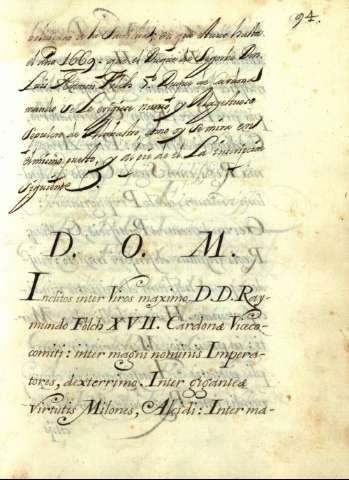 94.
de la que duró hasta
el año 1669: que el Duque de Segorbe Don
Luis Ramon Folch y Duque de Cardona
mando se le erigiese nuevo y Magestuoso
sepulcro de Alabastro, como oy se mira en
el mismo puesto, y al pie de el La inscripcion
siguiente
D. O. M.
Inclitos inter Viros maximo D.D. Ray-
mundo Folch XVII. Cardonæ Viceco-
comiti: inter magni nominis Impera-
tores, dexterrimo. Inter giganteæ
virtutis Milones, Alcidi: Inter ma-